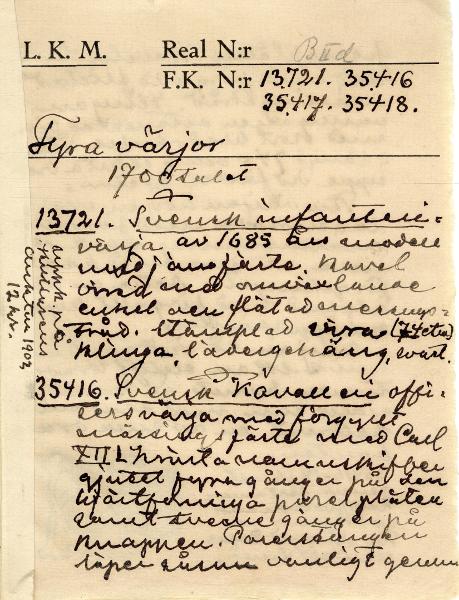 L. K. M. Real N:r B II d
F.K. N:r 13721. 35416
35417. 35418.
Fyra värjor
1700talet
13721. Svensk infanteri=
värja av 1685 års modell
med järnfäste. Kavel
virad med omväxlande
enkel och flätad mässings-
tråd. Stämplad
klinga, lävergehäng, svart.
inköpt på
auktion 1903
12 kr.
35416. Svensk Kavalleri offi=
sersvärja med förgyllt
mässingsfäste med Carl
XII krönta namnskiffer
gjutet fyra gånger på den
hjärtformiga parerplåten
samt gånger på
knappen. Parerstången
löper såsom vanligt genom